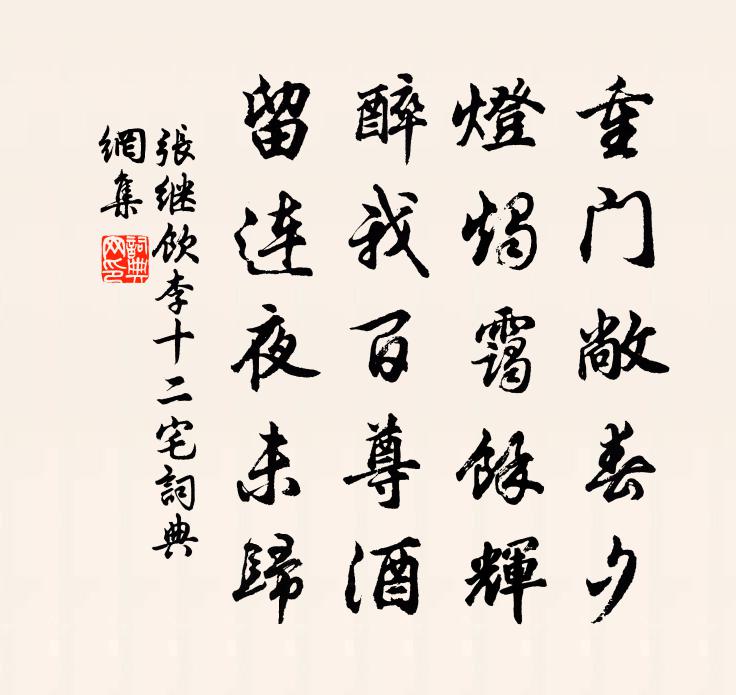 重门敞春夕
燈燭靄餘輝
醉我百尊酒
留连夜未歸
張继饮李十二宅詞典
網集
詞典
网印